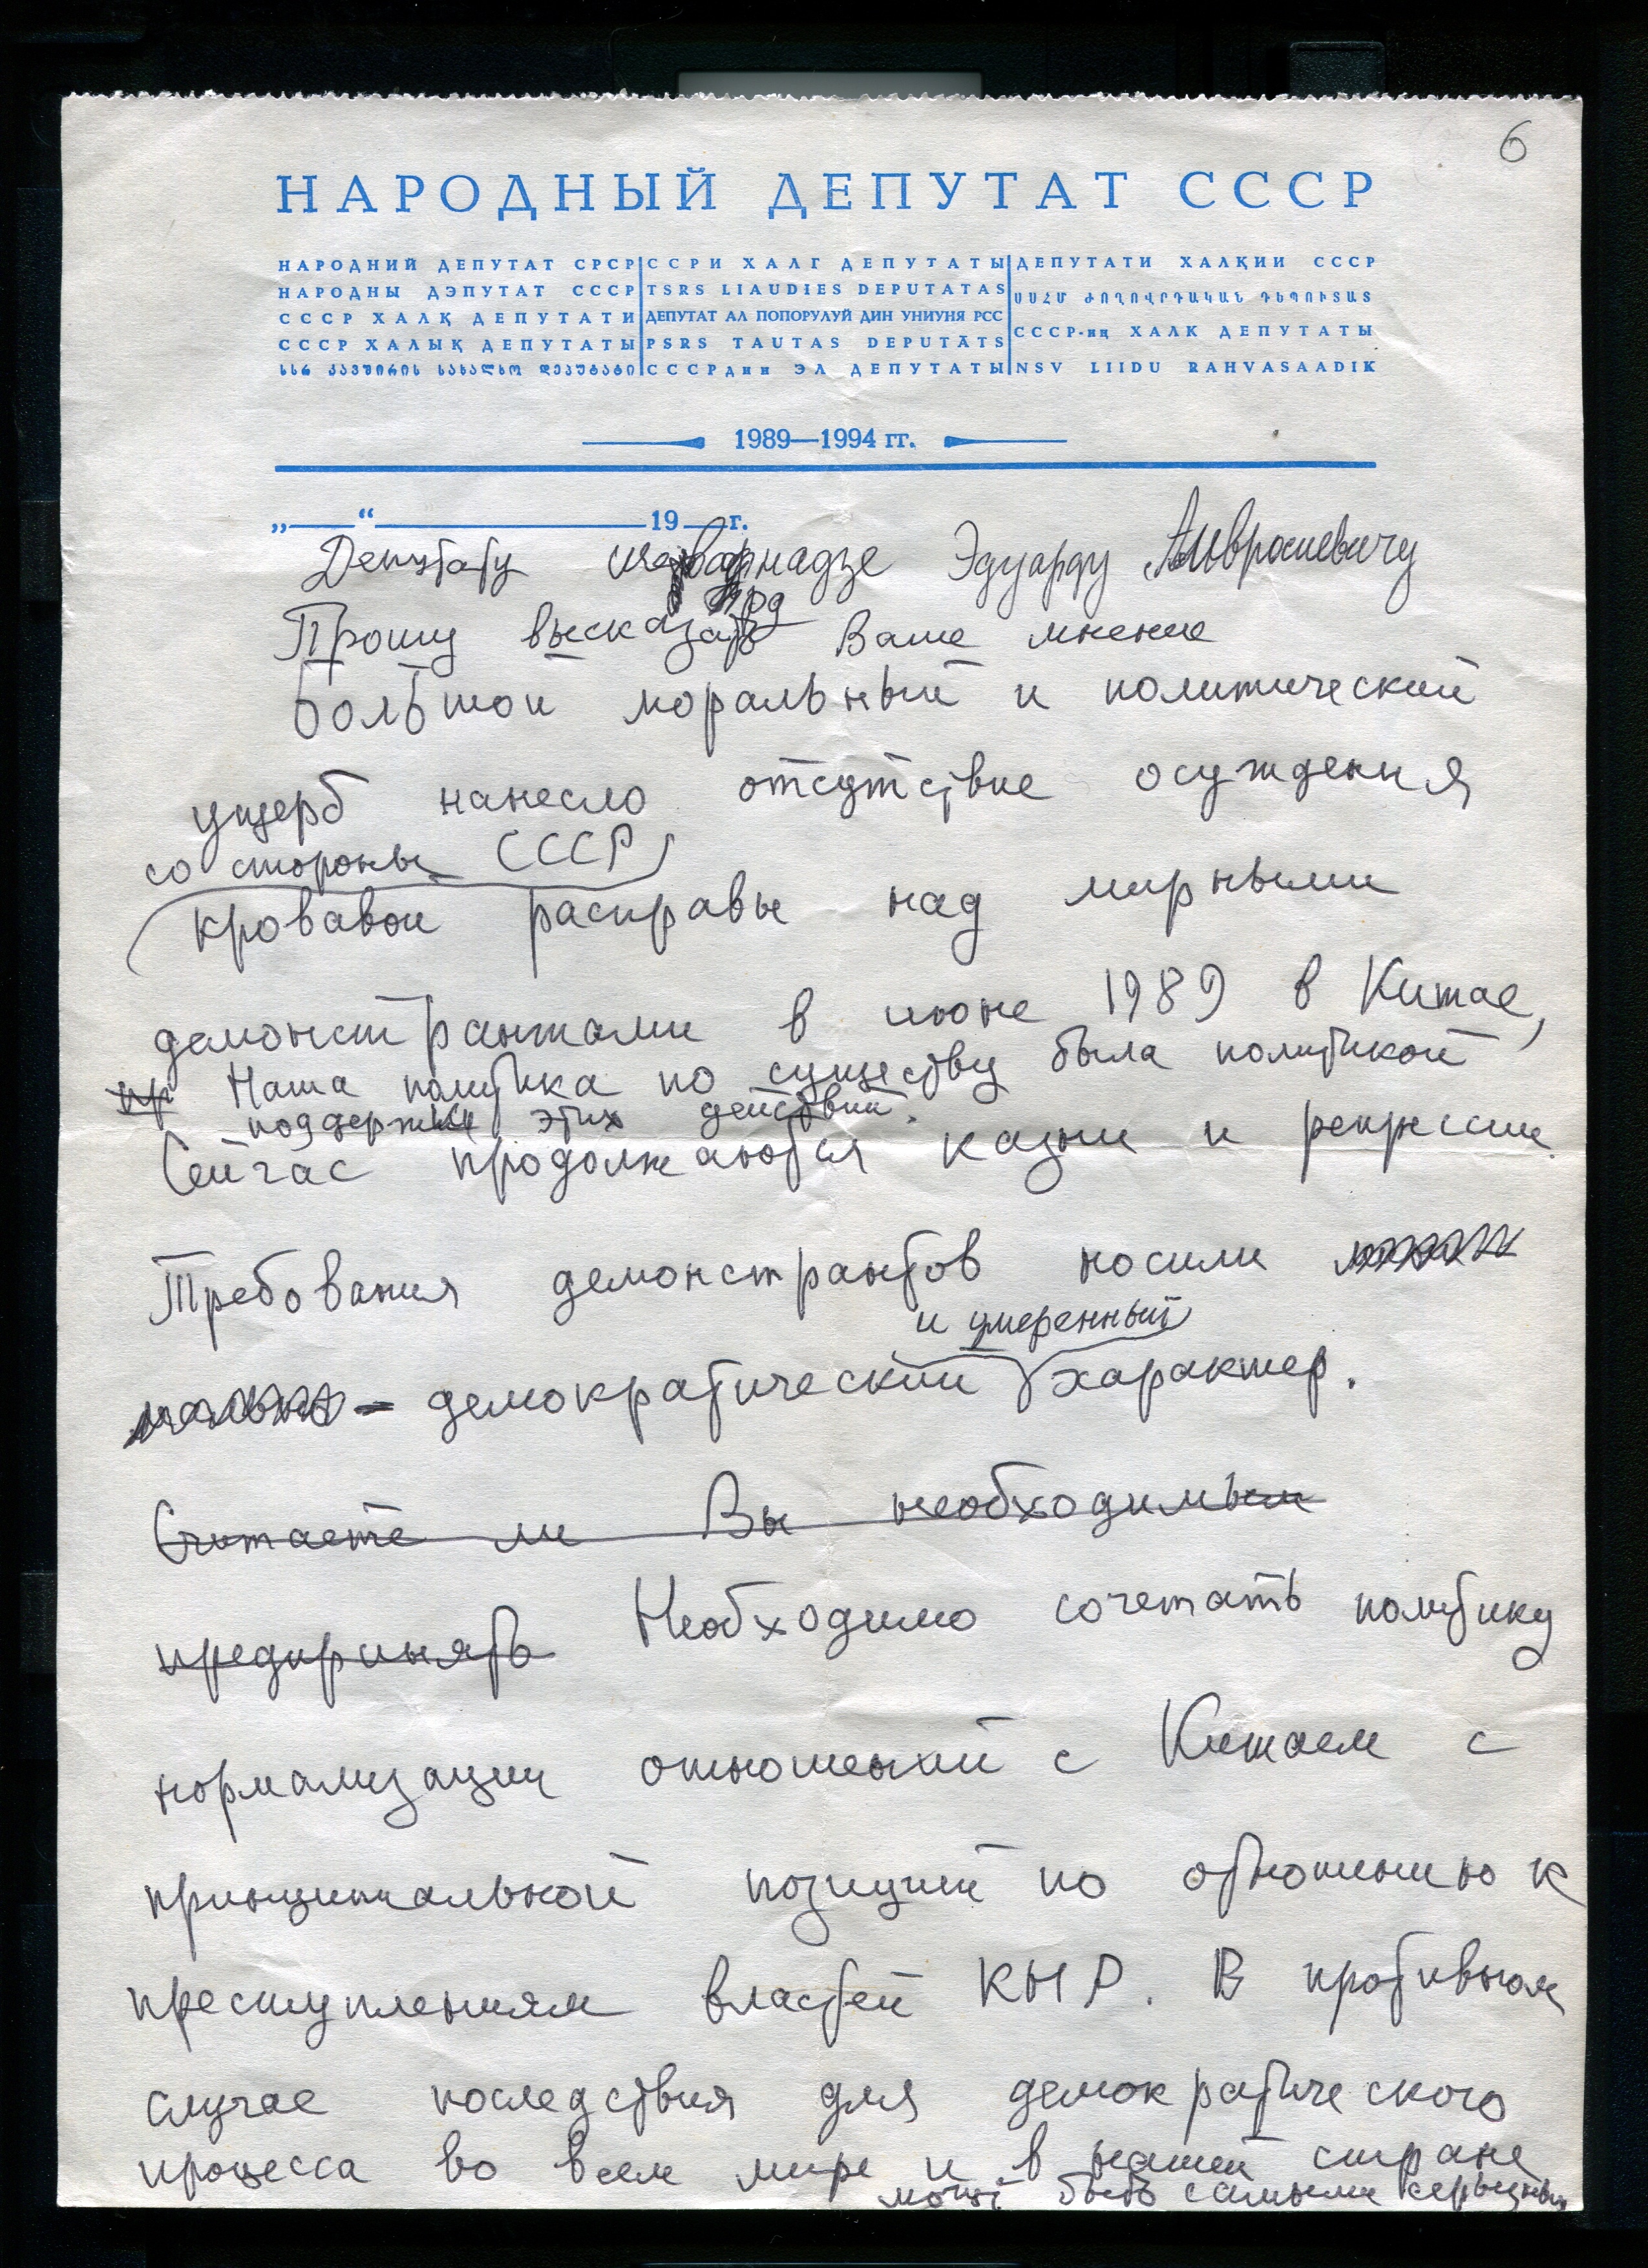 6
НАРОДНЫЙ ДЕПУТАТ СССР
НАРОДНИЙ ДЕПУТАТ СРСР
НАРОДНЫ ДЭПУТАТ СССР
СССР ХАЛҚ ДЕПУТАТИ
СССР ХАЛЫҚ ДЕПУТАТЫ
სსრ კავშირის სახალხო დეპუტატი
ССРИ ХАЛГ ДЕПУТАТЫ
TSRS LIAUDIES DEPUTATAS
ДЕПУТАТ АЛ ПОПОРУЛУЙ ДИН УНИУНЯ РСС
PSRS TAUTAS DEPUTĀTS
СССРдин ЭЛ ДЕПУТАТЫ
ДЕПУТАТИ ХАЛҚИИ СССР
ՍՍՀՄ ԺՈՂՈՎՐԴԱԿԱՆ ԴԵՊՈՒՏԱՏ
СССР-иң ХАЛК ДЕПУТАТЫ
NSV LIIDU RAHVASAADIK
1989—1994 гг.
„ “ 19 г.
Депутату Шеварднадзе Эдуарду Амвросиевичу
Прошу высказать Ваше мнение
Большой моральный и политический
ущерб нанесло отсутствие осуждения
со стороны СССР
кровавой расправы над мирными
демонстрантами в июне 1989 в Китае,
пр Наша политика по существу была политикой
поддержки этих действий.
Сейчас продолжаются казни и репрессии.
Требования демонстрантов носили
и умеренный
демократический характер.
Считаете ли Вы необходимым
предпринять Необходимо сочетать политику
нормализации отношений с Китаем с
принципиальной позицией по отношению к
преступлениям властей КНР. В противном
случае последствия для демократического
процесса во всем мире и в нашей стране
могут быть самыми серьезными